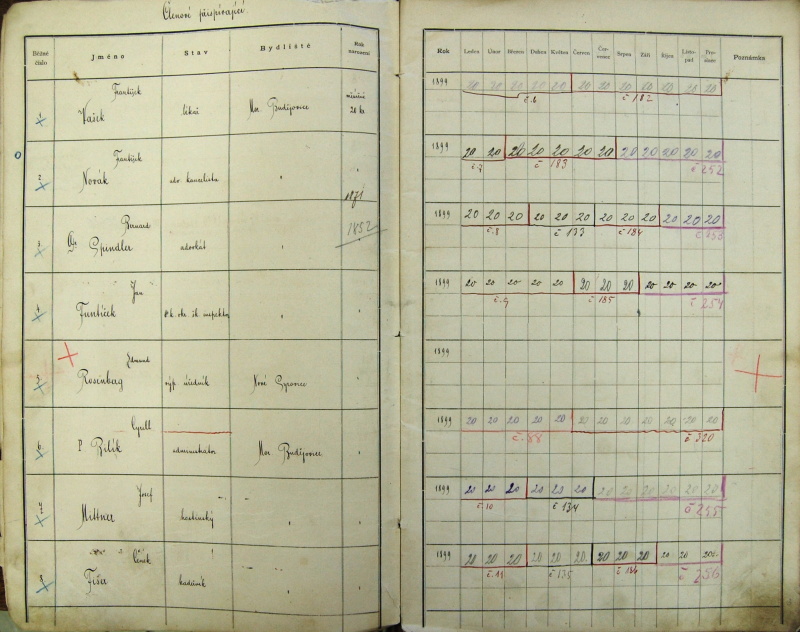 Členové přispívající.
Běžné číslo
Jméno
Stav
Bydliště
Rok narození
Rok
Leden
Únor
Březen
Duben
Květen
Červen
Čer-venec
Srpen
Září
Říjen
Listo-pad
Pro-sinec
Poznámka
1
František
Vašek
lékař
Mor. Budějovice
měsíčně
20 kr.
1899
20 20 20 20 20 20 20 20 20 20 20
č. 182
2
František
Novák
adv. kancelista
"
"
1899
20 20 20 20 20 20 20 20 20 20 20 20
č. 7
č 183
č 252
1871
3
Bernard
Spindler
advokát
"
1852
1899
20 20 20 20 20 20 20 20 20 20 20 20
č. 8
č 133
č 184
č 253
4
Jan
Funtíček
"
"
1899
20 20 20 20 20 20 20 20 20 20 20 20
č. 9
č 185
č 254
5
Edmund
Rosenberg
výp. úředník
Nové Syrovice
"
1899
6
Cyrill
P. Bílík
administrátor
Mor Budějovice
"
1899
20 20 20 20 20 20 20 20 20 20 20 20
č. 88
č 320
7
Josef
Mittner
hostinský
"
"
1899
20 20 20 20 20 20 20 20 20 20 20 20
č. 10
č 134
č 255
8
Čeněk
Fišer
kadeřník
"
"
1899
20 20 20 20 20 20 20 20 20 20 20 20
č. 11
č 135
č 186
č 256